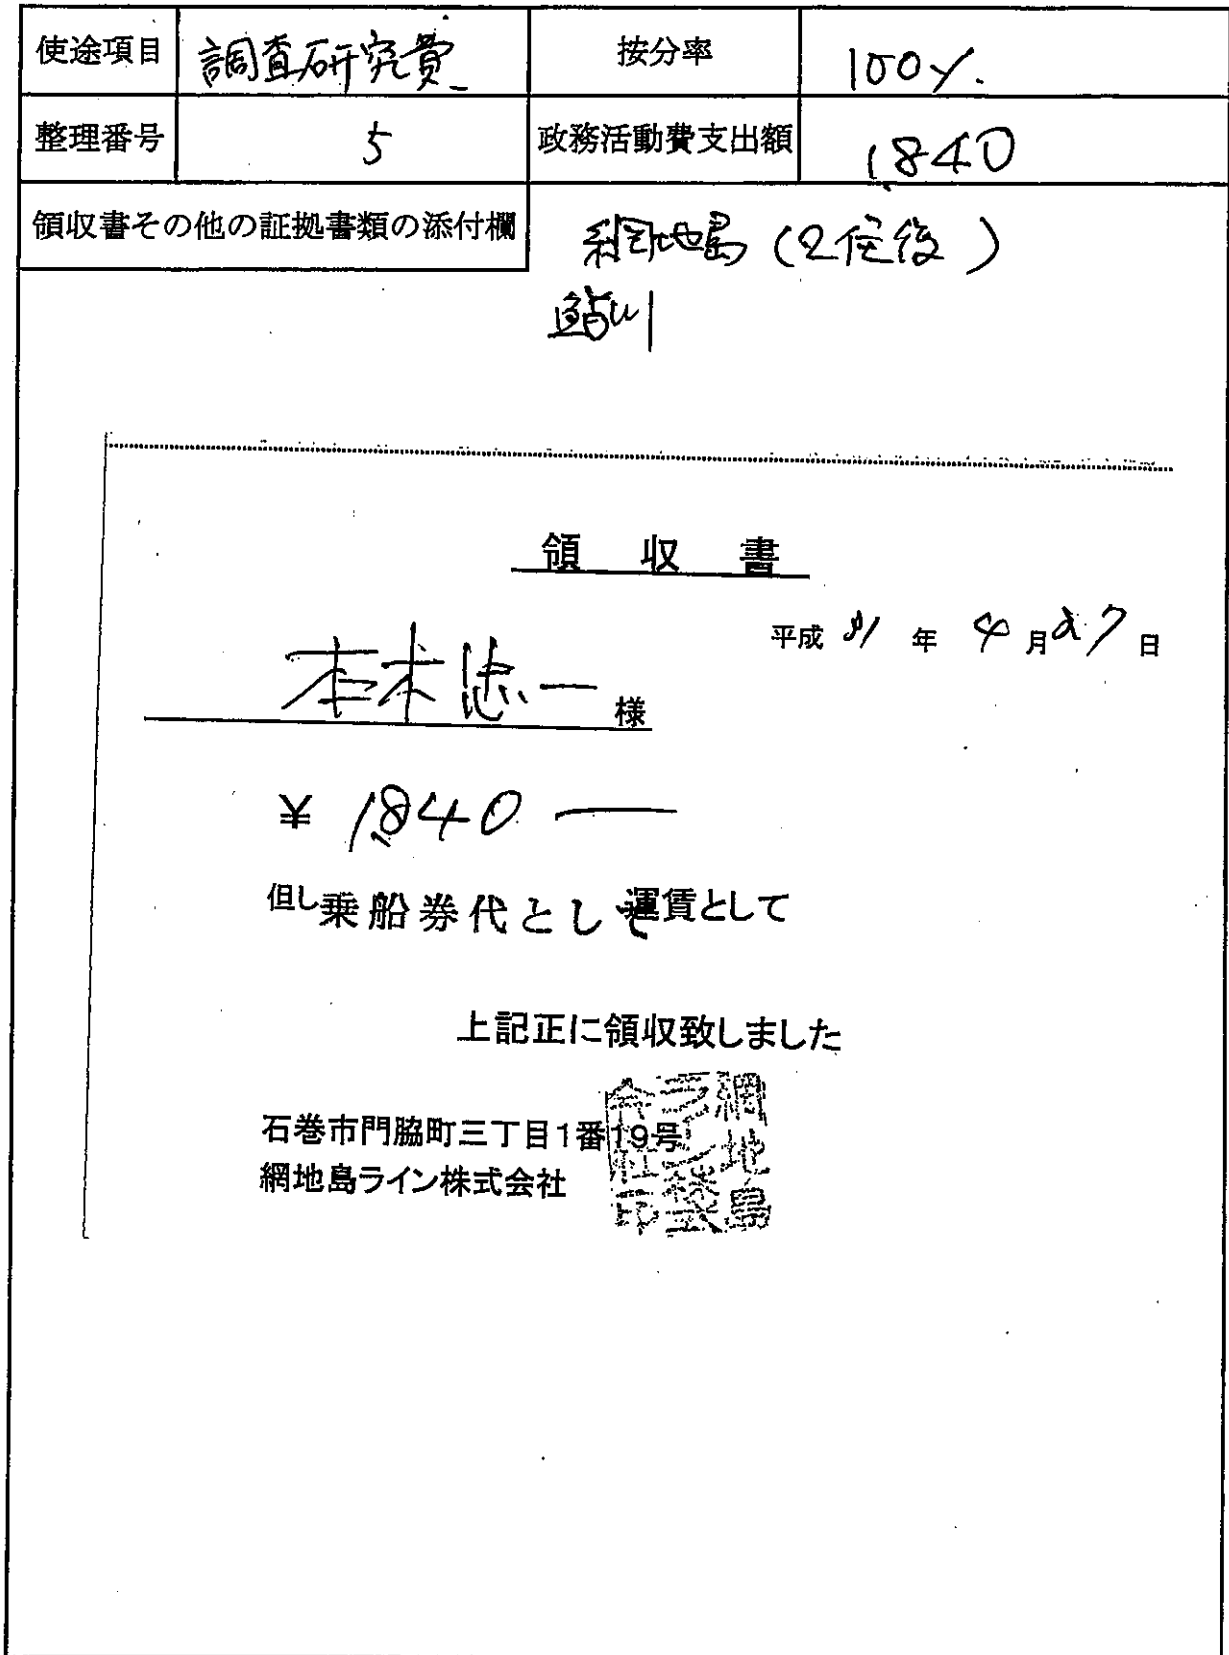 使途項目 調査研究費 按分率 100%
整理番号 5 政務活動費支出額 1,840
領収書その他の証拠書類の添付欄
網地島(2往復)
鮎川
領収書
平成31年4月27日
本木忠一様
¥1,840―
但し乗船券代として運賃として
上記正に領収致しました
石巻市門脇町三丁目1番19号
網地島ライン株式会社
網地島ライン株式会社印